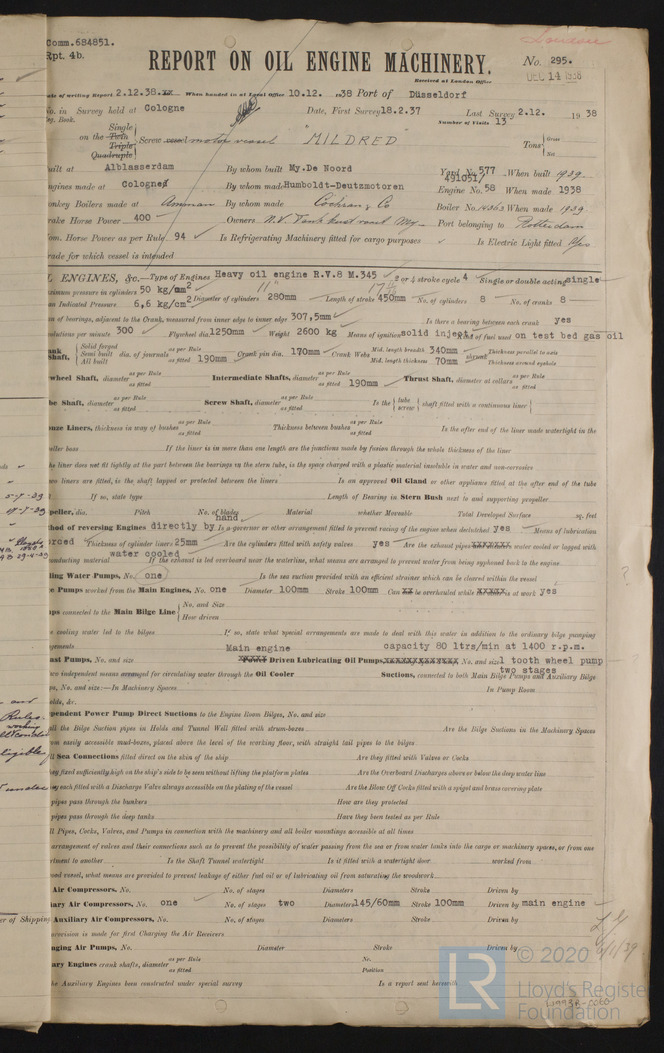 Comm.684851.
Rpt. 4b.
London
REPORT ON OIL ENGINE MACHINERY.
No. 295.
Received at London Office
DEC 14 1938
ate of writing Report 2.12.38. When handed in at Local Office 10.12. 38 Port of Düsseldorf
No. in Survey held at Cologne Date, First Survey 18.2.37 Last Survey 2.12. 1938
Reg. Book. Number of Visits 13
on the Single Twin Triple Quadruple Screw vessel motor vessel "MILDRED" Tons Gross Net
uilt at Alblasserdam By whom built My.De Noord Yard No. 577 When built 1939
491051/
ngines made at Cologne By whom made Humboldt-Deutzmotoren Engine No. 58 When made 1938
onkey Boilers made at Annan By whom made Cochran & Co Boiler No. When made 1939
rake Horse Power 400 Owners N.V. Port belonging to Rotterdam
om. Horse Power as per Rule 94 Is Refrigerating Machinery fitted for cargo purposes Is Electric Light fitted
rade for which vessel is intended
L ENGINES, &c. Type of Engines Heavy oil engine R.V.8 M.345 2 or 4 stroke cycle 4 Single or double acting single
aximum pressure in cylinders 50 kg/cm² Diameter of cylinders 11" 280mm Length of stroke 450mm No. of cylinders 8 No. of cranks 8
an Indicated Pressure 6,6 kg/cm²
n of bearings, adjacent to the Crank, measured from inner edge to inner edge 307,5mm Is there a bearing between each crank yes
volutions per minute 300 Flywheel dia. 1250mm Weight 2600 kg Means of ignition solid inject. Kind of fuel used on test bed gas oil
ank Shaft, Solid forged Semi built All built dia. of journals as per Rule as fitted 190mm Crank pin dia. 170mm Crank Webs Mid. length breadth 340mm Mid. length thickness 70mm shrunk Thickness parallel to axis Thickness around eyehole
wheel Shaft, diameter as per Rule as fitted Intermediate Shafts, diameter as per Rule as fitted 190mm Thrust Shaft, diameter at collars as per Rule as fitted
be Shaft, diameter as per Rule as fitted Screw Shaft, diameter as per Rule as fitted Is the tube screw shaft fitted with a continuous liner
nze Liners, thickness in way of bushes as per Rule as fitted Thickness between bushes as per Rule as fitted Is the after end of the liner made watertight in the
eller boss If the liner is in more than one length are the junctions made by fusion through the whole thickness of the liner
he liner does not fit tightly at the part between the bearings in the stern tube, is the space charged with a plastic material insoluble in water and non-corrosive
wo liners are fitted, is the shaft lapped or protected between the liners Is an approved Oil Gland or other appliance fitted at the after end of the tube
If so, state type Length of Bearing in Stern Bush next to and supporting propeller
peller, dia. Pitch No. of blades Material whether Moveable Total Developed Surface sq. feet
hod of reversing Engines directly by hand. Is a governor or other arrangement fitted to prevent racing of the engine when declutched yes Means of lubrication
rced Thickness of cylinder liners 25mm Are the cylinders fitted with safety valves yes Are the exhaust pipes XXXXXXX water cooled or lagged with
onducting material water cooled If the exhaust is led overboard near the waterline, what means are arranged to prevent water being syphoned back to the engine
ling Water Pumps, No. one Is the sea suction provided with an efficient strainer which can be cleared within the vessel
e Pumps worked from the Main Engines, No. one Diameter 100mm Stroke 100mm Can XX be overhauled while XXXXX is at work yes
ps connected to the Main Bilge Line No. and Size How driven
e cooling water led to the bilges If so, state what special arrangements are made to deal with this water in addition to the ordinary bilge pumping
gements Main engine capacity 80 ltrs/min at 1400 r.p.m.
ast Pumps, No. and size XXXXX Driven Lubricating Oil Pumps, XXXXXXXXXXXXXX No. and size 1 tooth wheel pump two stages
wo independent means arranged for circulating water through the Oil Cooler Suctions, connected to both Main Bilge Pumps and Auxiliary Bilge
ps, No. and size:—In Machinery Spaces In Pump Room
olds, &c.
ependent Power Pump Direct Suctions to the Engine Room Bilges, No. and size
ll the Bilge Suction pipes in Holds and Tunnel Well fitted with strum-boxes Are the Bilge Suctions in the Machinery Spaces
om easily accessible mud-boxes, placed above the level of the working floor, with straight tail pipes to the bilges
ll Sea Connections fitted direct on the skin of the ship Are they fitted with Valves or Cocks
hey fixed sufficiently high on the ship's side to be seen without lifting the platform plates Are the Overboard Discharges above or below the deep water line
ey each fitted with a Discharge Valve always accessible on the plating of the vessel Are the Blow Off Cocks fitted with a spigot and brass covering plate
pipes pass through the bunkers How are they protected
pipes pass through the deep tanks Have they been tested as per Rule
ll Pipes, Cocks, Valves, and Pumps in connection with the machinery and all boiler mountings accessible at all times
arrangement of valves and their connections such as to prevent the possibility of water passing from the sea or from water tanks into the cargo or machinery spaces, or from one
rtment to another Is the Shaft Tunnel watertight Is it fitted with a watertight door worked from
ood vessel, what means are provided to prevent leakage of either fuel oil or of lubricating oil from saturating the woodwork
Air Compressors, No. No. of stages Diameters Stroke Driven by
iary Air Compressors, No. one No. of stages two Diameters 145/60mm Stroke 100mm Driven by main engine
Auxiliary Air Compressors, No. No. of stages Diameters Stroke Driven by
rovision is made for first Charging the Air Receivers
nging Air Pumps, No. Diameter Stroke Driven by
iary Engines crank shafts, diameter as per Rule as fitted No. Position
he Auxiliary Engines been constructed under special survey Is a report sent herewith
5-7-39
17-7-39
29-4-39
er of Shipping
LR
© 2020
Lloyd's Register
Foundation